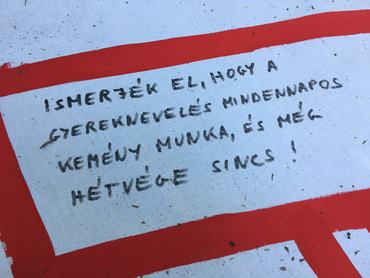 ISMERJÉK EL, HOGY A
GYEREKNEVELÉS MINDENNAPOS
KEMÉNY MUNKA, ÉS MÉG
HÉTVÉGE SINCS!